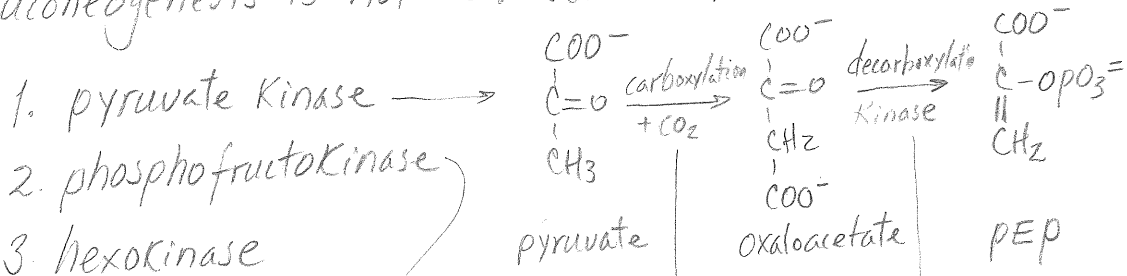 1. pyruvate kinase
2. phosphofructokinase
3. hexokinase
COO⁻
C=O
CH3
pyruvate
carboxylation
+ CO2
COO⁻
C=O
CH2
COO⁻
oxaloacetate
decarboxylate
Kinase
COO⁻
C-OPO3⁼
CH2
PEP